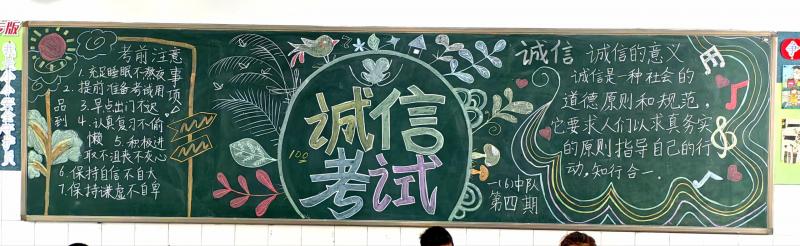 考前注意事项
1.充足睡眠不熬夜
2.提前准备考试用
品 3.早点出门不迟
到 4.认真复习不偷
懒 5.积极进
取不沮丧不灰心
6.保持自信不自大
7.保持谦虚不自卑
100
诚信
考试
一(6)中队
第四期
诚信 诚信的意义
诚信是一种社会的
道德原则和规范,
它要求人们以求真务实
的原则指导自己的行
动,知行合一.